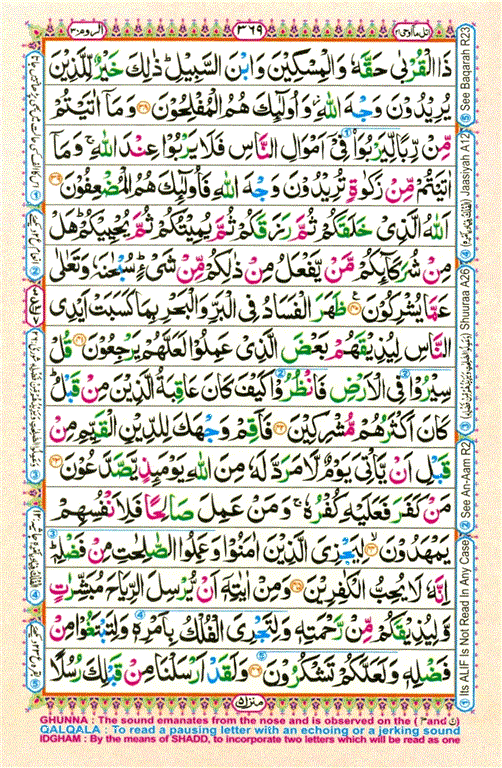 اتل مآ اوحی ۲۱
۳۶۹
الروم ۳۰
ذَا الْقُرْبٰى حَقَّهٗ وَالْمِسْكِيْنَ وَابْنَ السَّبِيْلِ ؕ ذٰلِكَ خَيْرٌ لِّلَّذِيْنَ
يُرِيْدُوْنَ وَجْهَ اللّٰهِ ۫ وَاُولٰٓئِكَ هُمُ الْمُفْلِحُوْنَ ۝۳۸ وَمَاۤ اٰتَيْتُمْ
مِّنْ رِّبًا لِّيَرْبُوَا۟ فِيْۤ اَمْوَالِ النَّاسِ فَلَا يَرْبُوْا عِنْدَ اللّٰهِ ۚ وَمَاۤ
اٰتَيْتُمْ مِّنْ زَكٰوةٍ تُرِيْدُوْنَ وَجْهَ اللّٰهِ فَاُولٰٓئِكَ هُمُ الْمُضْعِفُوْنَ ۝۳۹
اَللّٰهُ الَّذِيْ خَلَقَكُمْ ثُمَّ رَزَقَكُمْ ثُمَّ يُمِيْتُكُمْ ثُمَّ يُحْيِيْكُمْ ؕ هَلْ
مِنْ شُرَكَآئِكُمْ مَّنْ يَّفْعَلُ مِنْ ذٰلِكُمْ مِّنْ شَيْءٍ ؕ سُبْحٰنَهٗ وَتَعٰلٰى
عَمَّا يُشْرِكُوْنَ ۝۴۰ ظَهَرَ الْفَسَادُ فِي الْبَرِّ وَالْبَحْرِ بِمَا كَسَبَتْ اَيْدِي
النَّاسِ لِيُذِيْقَهُمْ بَعْضَ الَّذِيْ عَمِلُوْا لَعَلَّهُمْ يَرْجِعُوْنَ ۝۴۱ قُلْ
سِيْرُوْا فِي الْاَرْضِ فَانْظُرُوْا كَيْفَ كَانَ عَاقِبَةُ الَّذِيْنَ مِنْ قَبْلُ ؕ
كَانَ اَكْثَرُهُمْ مُّشْرِكِيْنَ ۝۴۲ فَاَقِمْ وَجْهَكَ لِلدِّيْنِ الْقَيِّمِ مِنْ
قَبْلِ اَنْ يَّاْتِيَ يَوْمٌ لَّا مَرَدَّ لَهٗ مِنَ اللّٰهِ يَوْمَئِذٍ يَّصَّدَّعُوْنَ ۝۴۳
مَنْ كَفَرَ فَعَلَيْهِ كُفْرُهٗ ۚ وَمَنْ عَمِلَ صَالِحًا فَلِاَنْفُسِهِمْ
يَمْهَدُوْنَ ۝۴۴ لِيَجْزِيَ الَّذِيْنَ اٰمَنُوْا وَعَمِلُوا الصّٰلِحٰتِ مِنْ فَضْلِهٖ ؕ
اِنَّهٗ لَا يُحِبُّ الْكٰفِرِيْنَ ۝۴۵ وَمِنْ اٰيٰتِهٖۤ اَنْ يُّرْسِلَ الرِّيَاحَ مُبَشِّرٰتٍ
وَّلِيُذِيْقَكُمْ مِّنْ رَّحْمَتِهٖ وَلِتَجْرِيَ الْفُلْكُ بِاَمْرِهٖ وَلِتَبْتَغُوْا مِنْ
فَضْلِهٖ وَلَعَلَّكُمْ تَشْكُرُوْنَ ۝۴۶ وَلَقَدْ اَرْسَلْنَا مِنْ قَبْلِكَ رُسُلًا
منزل ۵
① Its ALIF Is Not Read In Any Case
② See An-Aam R2
③ Shuuraa A26
④ Jaasiyah A12
⑤ See Baqarah R23
GHUNNA : The sound emanates from the nose and is observed on the ( م and ن )
QALQALA : To read a pausing letter with an echoing or a jerking sound
IDGHAM : By the means of SHADD, to incorporate two letters which will be read as one